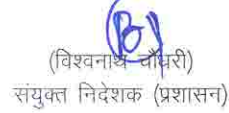 (विश्वनाथ चौधरी)
संयुक्त निदेशक (प्रशासन)